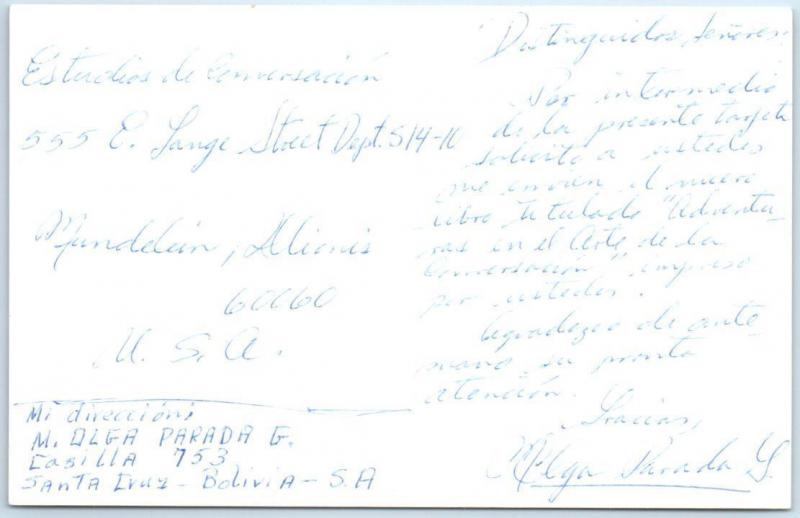 Estudios de Conversación
555 E. Lange Street Dept. S14-10
Mundelein, Ilionis
60060
U. S. A.
Mi dirección:
M. OLGA PARADA G.
Casilla 753
Santa Cruz - Bolivia - S.A
Distinguidos señores:
Por intermedio
de la presente tarjeta
solicito a ustedes
me envíen el nuevo
libro titulado "Adventu-
ras en el Arte de la
Conversación" impreso
por ustedes.
Agradezco de ante
mano su pronta
atención.
Gracias,
M. Olga Parada G.